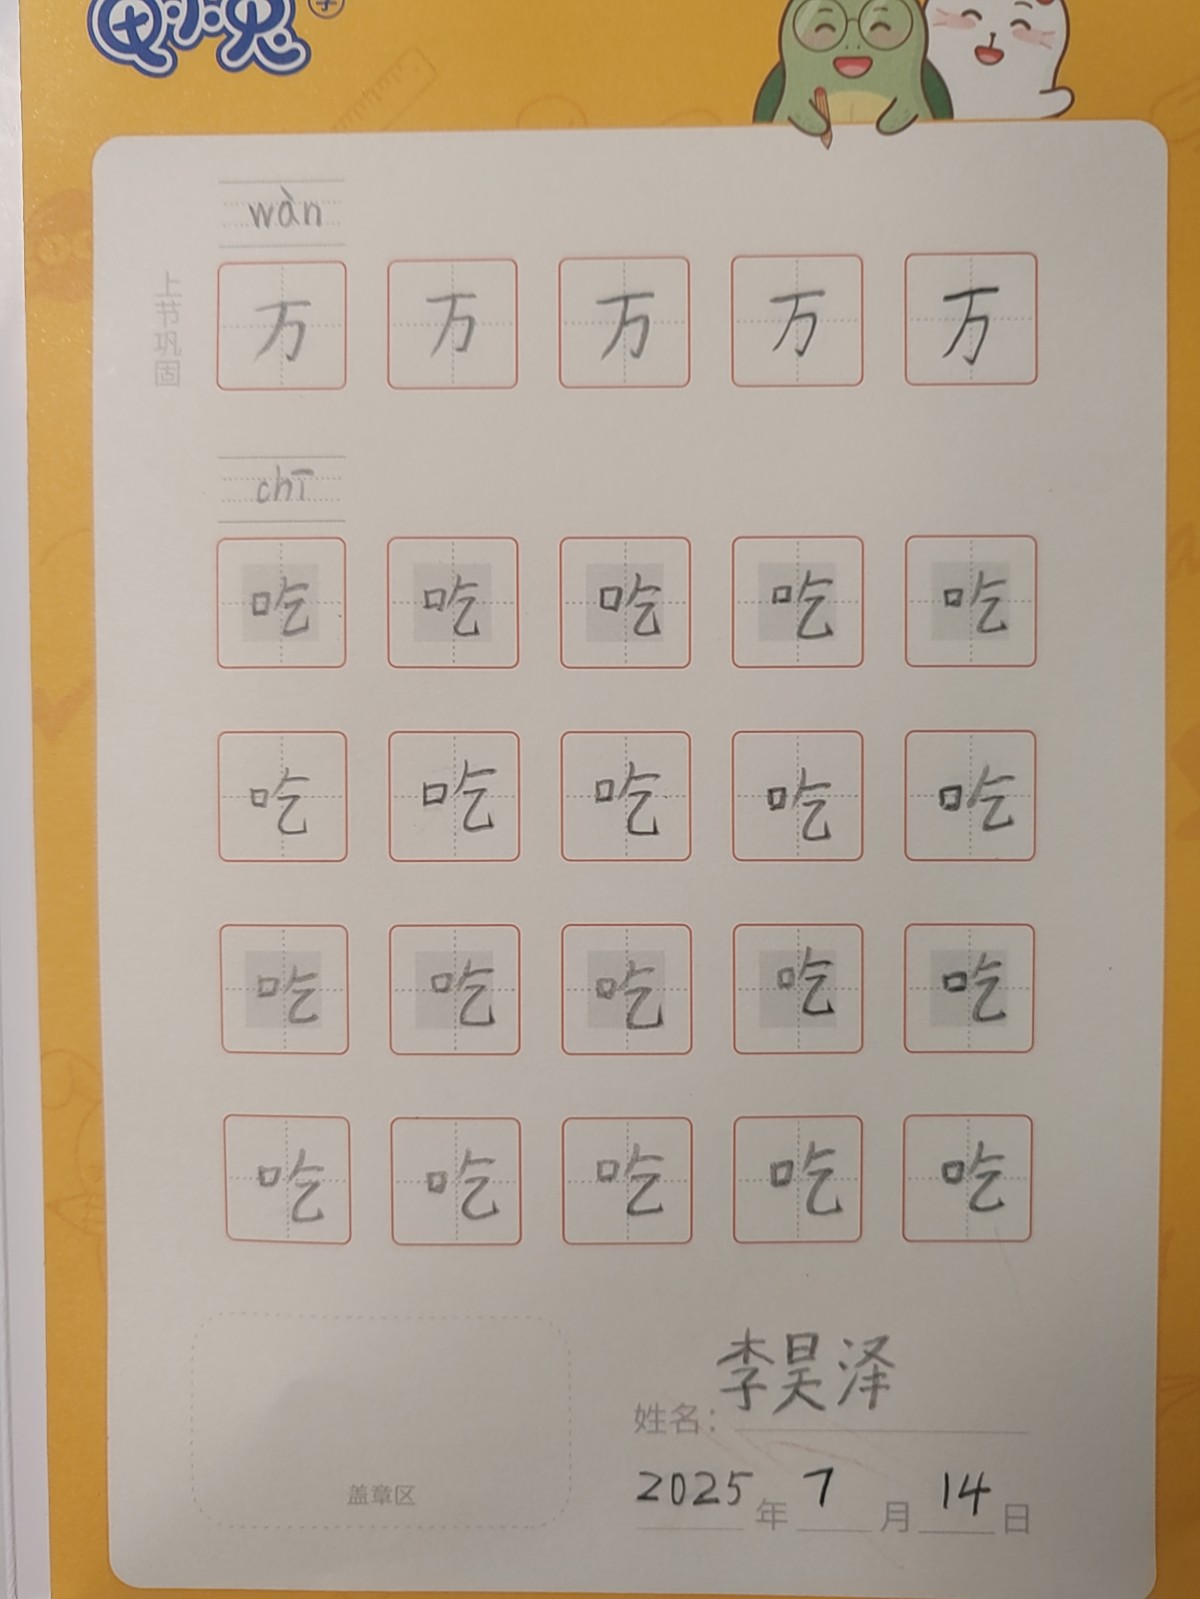 wàn
上节巩固
万 万 万 万 万
chī
吃 吃 吃 吃 吃
吃 吃 吃 吃 吃
吃 吃 吃 吃 吃
吃 吃 吃 吃 吃
盖章区
姓名：李昊泽
2025年7月14日